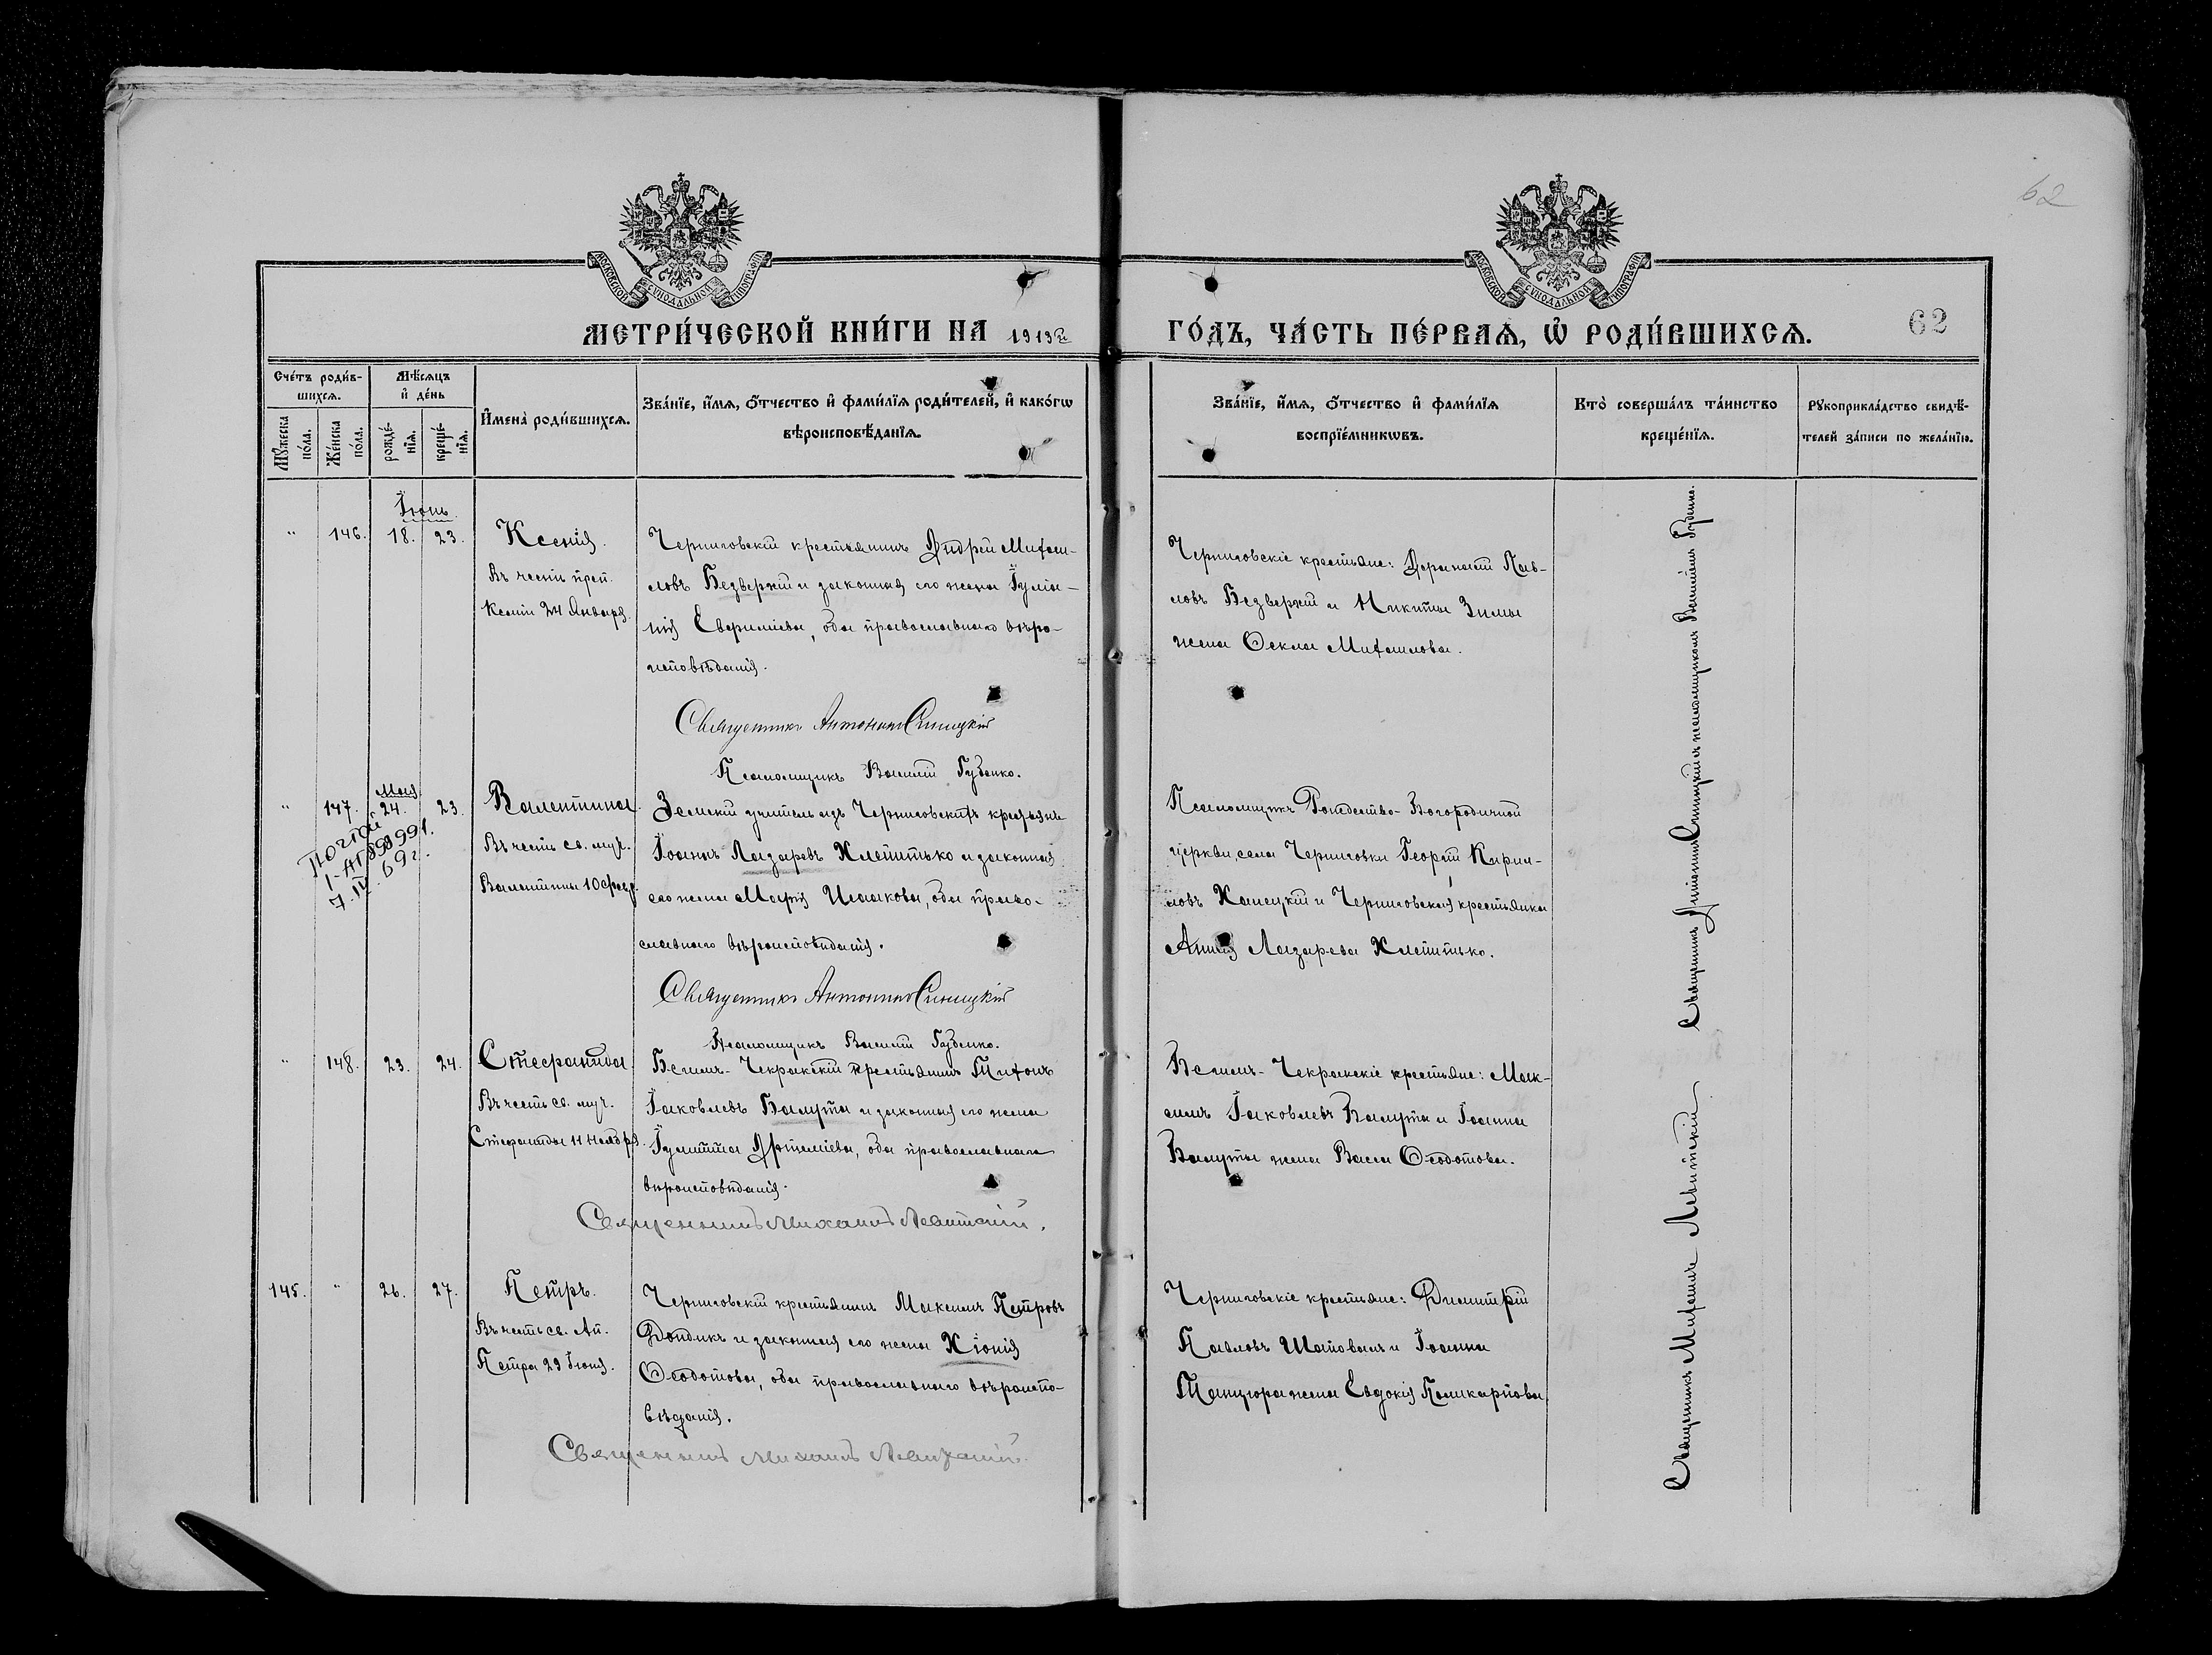 62
МОСКОВСКОЙ СѴНОДАЛЬНОЙ ТИПОГРАФІИ
МОСКОВСКОЙ СѴНОДАЛЬНОЙ ТИПОГРАФІИ
МЕТРИ́ЧЕСКОЙ КНИ́ГИ НА 1913й ГО́ДЪ, ЧА́СТЬ ПЕ́РВАѦ, Ѡ҆ РОДИ́ВШИХСѦ.
62
Сче́тъ роди́в-
шихсѧ.
Мꙋ́жеска по́ла.
Же́нска по́ла.
Мѣ́сѧцъ
и҆ де́нь
рожде́-
нїѧ.
креще́-
нїѧ.
И҆мена̀ роди́вшихсѧ.
Зва́нїе, и҆́мѧ, ѻ҆́тчество и҆ фами́лїѧ роди́телей, и҆ како́гѡ
вѣроисповѣ́данїѧ.
Зва́нїе, и҆́мѧ, ѻ҆́тчество и҆ фами́лїѧ
воспрїе́мникѡвъ.
Кто̀ соверша́лъ та́инство
креще́нїѧ.
Рꙋкоприкла́дство свидѣ́-
телей за́писи по жела́нїю.
Іюнь
" 146. 18. 23.
Ксенія.
Въ честь преп.
Ксеніи 24 Января.
Черниговскій крестьянинъ Андрей Михаи-
ловъ Безверхій и законная его жена Іуліа-
нія Евфиміева, оба православнаго вѣро-
исповѣданія.
Священникъ Антонинъ Синицкій
Псаломщикъ Василій Губенко.
Черниговскіе крестьяне: Афанасій Пав-
ловъ Безверхій и Никиты Зимы
жена Ѳекла Михаилова.
Священникъ Антонинъ Синицкій съ псаломщикомъ Василіемъ Губенко.
Мая
" 147. 24. 23.
Валентина.
Въ честь св. муч.
Валентины 10 февр.
ПОЧТОЙ
1-АП 898991.
7.IV.69г.
Земскій учитель изъ Черниговскихъ крестьянъ
Іоаннъ Лазаревъ Клепитько и законная
его жена Марія Исаакова, оба право-
славнаго вѣроисповѣданія.
Священникъ Антонинъ Синицкій
Псаломщикъ Василій Губенко.
Псаломщикъ Рождество-Богородичной
церкви села Черниговки Георгій Кирил-
ловъ Ханецкій и Черниговская крестьянка
Анна Лазарева Клепитько.
" 148. 23. 24.
Стефанида
Въ честь св. муч.
Стефаниды 11 Ноября.
Бегимъ-Чекракскій крестьянинъ Тихонъ
Іаковлевъ Бамута и законная его жена
Іулитта Артеміева, оба православнаго
вѣроисповѣданія.
Священникъ Михаилъ Левитскій.
Бегимъ-Чекракскіе крестьяне: Мак-
симъ Іаковлевъ Бамута и Іоанна
Бамуты жена Васса Ѳеодотова.
Священникъ Михаилъ Левитскій
145. " 26. 27.
Петръ.
Въ честь св. Ап.
Петра 29 Іюня.
Черниговскій крестьянинъ Максимъ Петровъ
Дондикъ и законная его жена Хіонія
Ѳеодотова, оба православнаго вѣроиспо-
вѣданія.
Священникъ Михаилъ Левитскій.
Черниговскіе крестьяне: Димитрій
Павловъ Шаповалъ и Іоанна
Танцюра жена Евдокія Поликарпова.